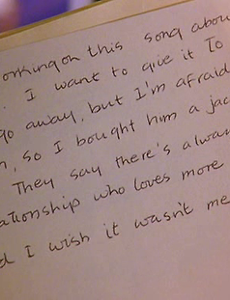 orking on this song abou
. I want to give it to
go away, but I'm afraid
, so I bought him a jac
They say there's alwa
ationship who loves more
d I wish it wasn't me